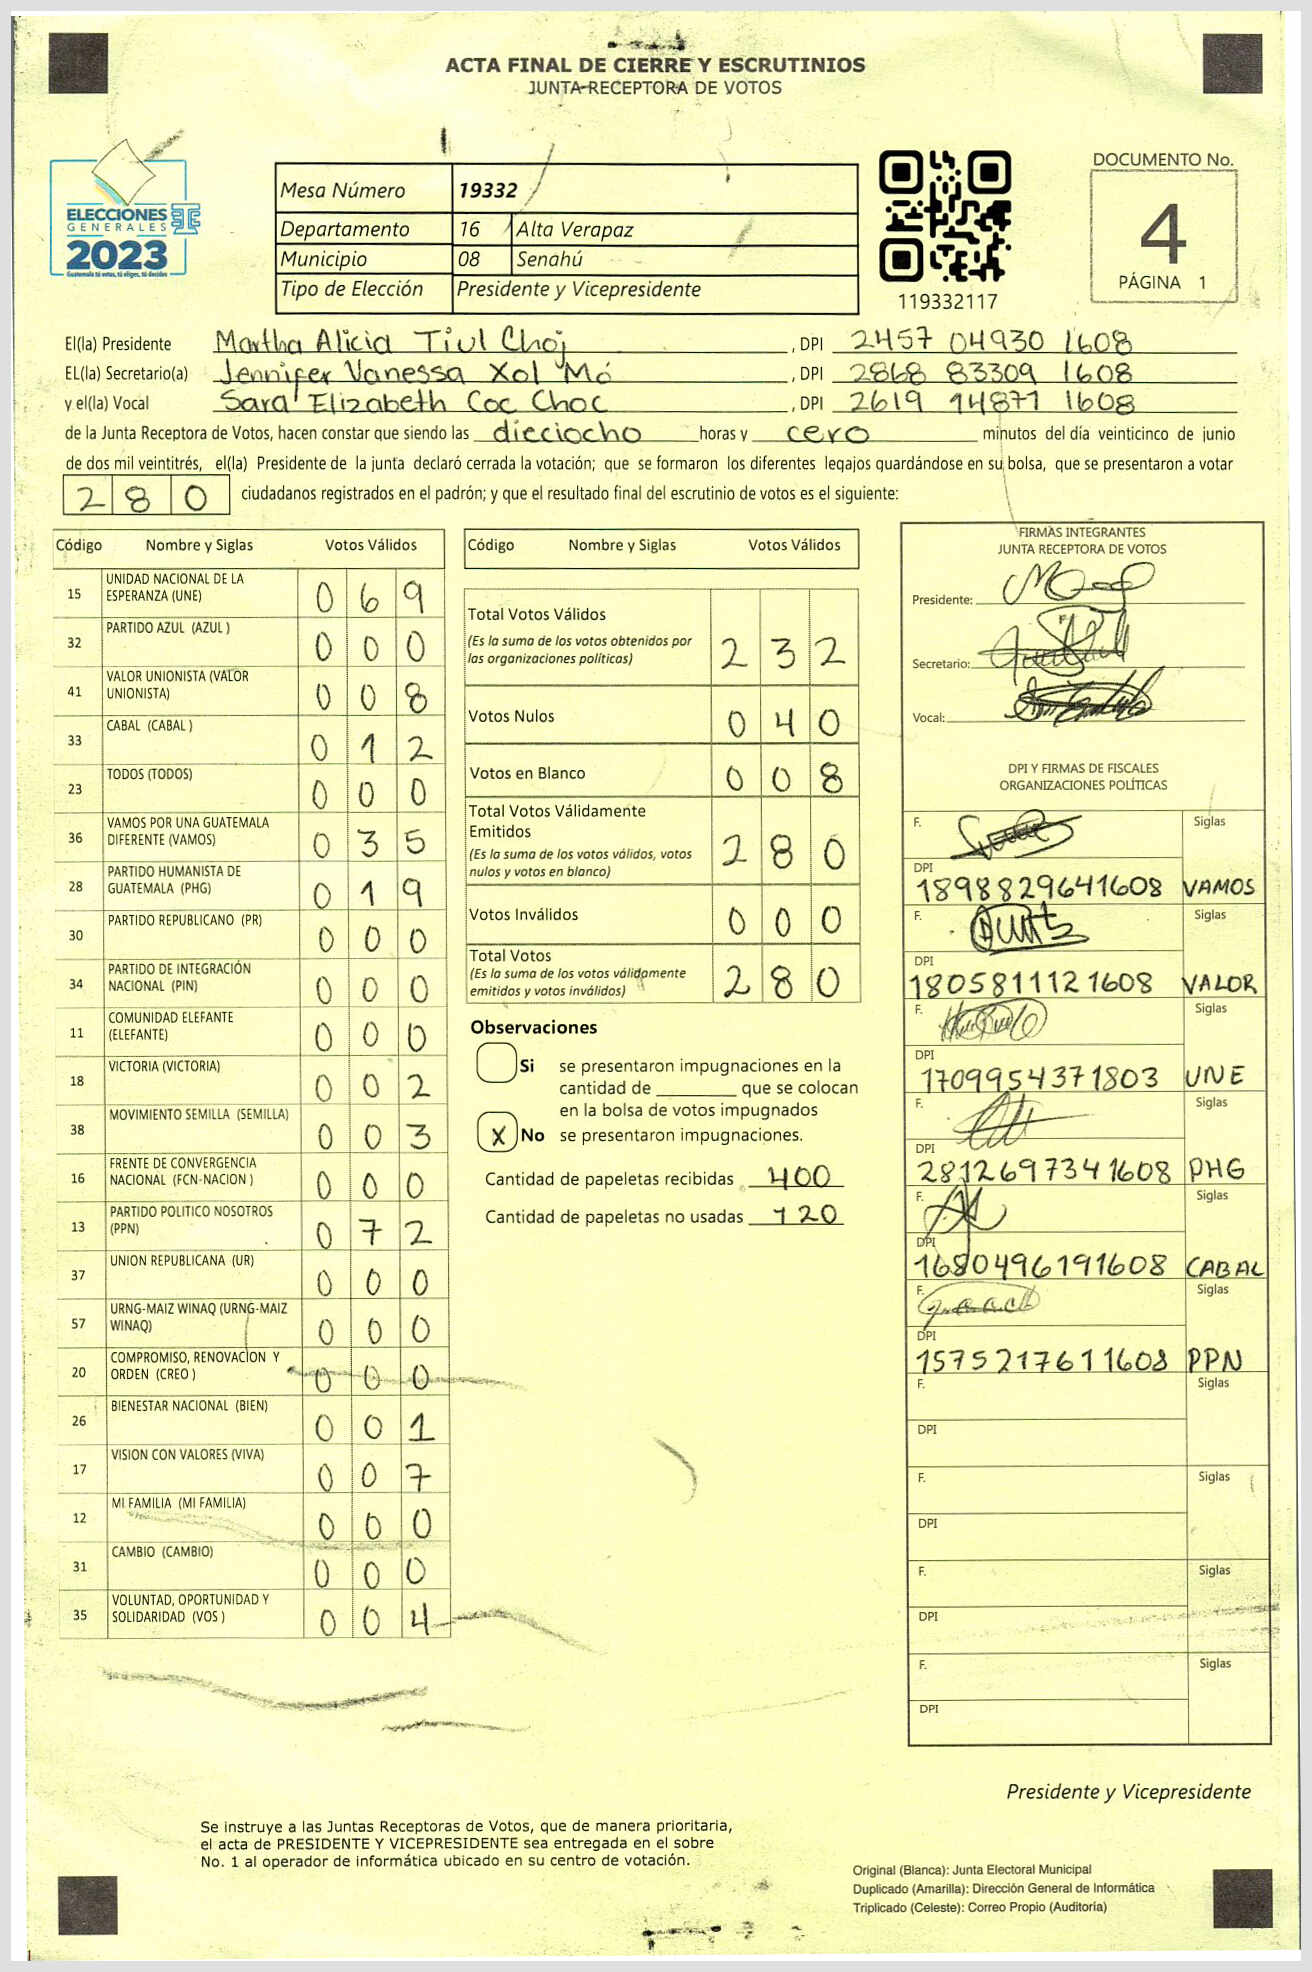 ACTA FINAL DE CIERRE Y ESCRUTINIOS
JUNTA RECEPTORA DE VOTOS
ELECCIONES
GENERALES
2023
Guatemala tú votas, tú eliges, tú decides
Mesa Número 19332
Departamento 16 Alta Verapaz
Municipio 08 Senahú
Tipo de Elección Presidente y Vicepresidente
119332117
DOCUMENTO No.
4
PÁGINA 1
El(la) Presidente Martha Alicia Tiul Choj , DPI 2457 04930 1608
EL(la) Secretario(a) Jennifer Vanessa Xol Mó , DPI 2868 83309 1608
y el(la) Vocal Sara Elizabeth Coc Choc , DPI 2619 14871 1608
de la Junta Receptora de Votos, hacen constar que siendo las dieciocho horas y cero minutos del día veinticinco de junio
de dos mil veintitrés, el(la) Presidente de la junta declaró cerrada la votación; que se formaron los diferentes legajos guardándose en su bolsa, que se presentaron a votar
280 ciudadanos registrados en el padrón; y que el resultado final del escrutinio de votos es el siguiente:
Código Nombre y Siglas Votos Válidos
15 UNIDAD NACIONAL DE LA ESPERANZA (UNE) 0 6 9
32 PARTIDO AZUL (AZUL ) 0 0 0
41 VALOR UNIONISTA (VALOR UNIONISTA) 0 0 8
33 CABAL (CABAL ) 0 1 2
23 TODOS (TODOS) 0 0 0
36 VAMOS POR UNA GUATEMALA DIFERENTE (VAMOS) 0 3 5
28 PARTIDO HUMANISTA DE GUATEMALA (PHG) 0 1 9
30 PARTIDO REPUBLICANO (PR) 0 0 0
34 PARTIDO DE INTEGRACIÓN NACIONAL (PIN) 0 0 0
11 COMUNIDAD ELEFANTE (ELEFANTE) 0 0 0
18 VICTORIA (VICTORIA) 0 0 2
38 MOVIMIENTO SEMILLA (SEMILLA) 0 0 3
16 FRENTE DE CONVERGENCIA NACIONAL (FCN-NACION ) 0 0 0
13 PARTIDO POLITICO NOSOTROS (PPN) 0 7 2
37 UNION REPUBLICANA (UR) 0 0 0
57 URNG-MAIZ WINAQ (URNG-MAIZ WINAQ) 0 0 0
20 COMPROMISO, RENOVACION Y ORDEN (CREO ) 0 0 0
26 BIENESTAR NACIONAL (BIEN) 0 0 1
17 VISION CON VALORES (VIVA) 0 0 7
12 MI FAMILIA (MI FAMILIA) 0 0 0
31 CAMBIO (CAMBIO) 0 0 0
35 VOLUNTAD, OPORTUNIDAD Y SOLIDARIDAD (VOS ) 0 0 4
Código Nombre y Siglas Votos Válidos
Total Votos Válidos 2 3 2
(Es la suma de los votos obtenidos por
las organizaciones políticas)
Votos Nulos 0 4 0
Votos en Blanco 0 0 8
Total Votos Válidamente
Emitidos 2 8 0
(Es la suma de los votos válidos, votos
nulos y votos en blanco)
Votos Inválidos 0 0 0
Total Votos 2 8 0
(Es la suma de los votos válidamente
emitidos y votos inválidos)
Observaciones
Si se presentaron impugnaciones en la
cantidad de ________ que se colocan
en la bolsa de votos impugnados
X No se presentaron impugnaciones.
Cantidad de papeletas recibidas 400
Cantidad de papeletas no usadas 120
FIRMAS INTEGRANTES
JUNTA RECEPTORA DE VOTOS
Presidente:
Secretario:
Vocal:
DPI Y FIRMAS DE FISCALES
ORGANIZACIONES POLÍTICAS
F. Siglas
DPI
1898829641608 VAMOS
F. Siglas
DPI
1805811121608 VALOR
F. Siglas
DPI
1709954371803 UNE
F. Siglas
DPI
2812697341608 PHG
F. Siglas
DPI
1680496191608 CABAL
F. Siglas
DPI
1575217611608 PPN
F. Siglas
DPI
F. Siglas
DPI
F. Siglas
DPI
F. Siglas
DPI
Presidente y Vicepresidente
Se instruye a las Juntas Receptoras de Votos, que de manera prioritaria,
el acta de PRESIDENTE Y VICEPRESIDENTE sea entregada en el sobre
No. 1 al operador de informática ubicado en su centro de votación.
Original (Blanca): Junta Electoral Municipal
Duplicado (Amarilla): Dirección General de Informática
Triplicado (Celeste): Correo Propio (Auditoría)